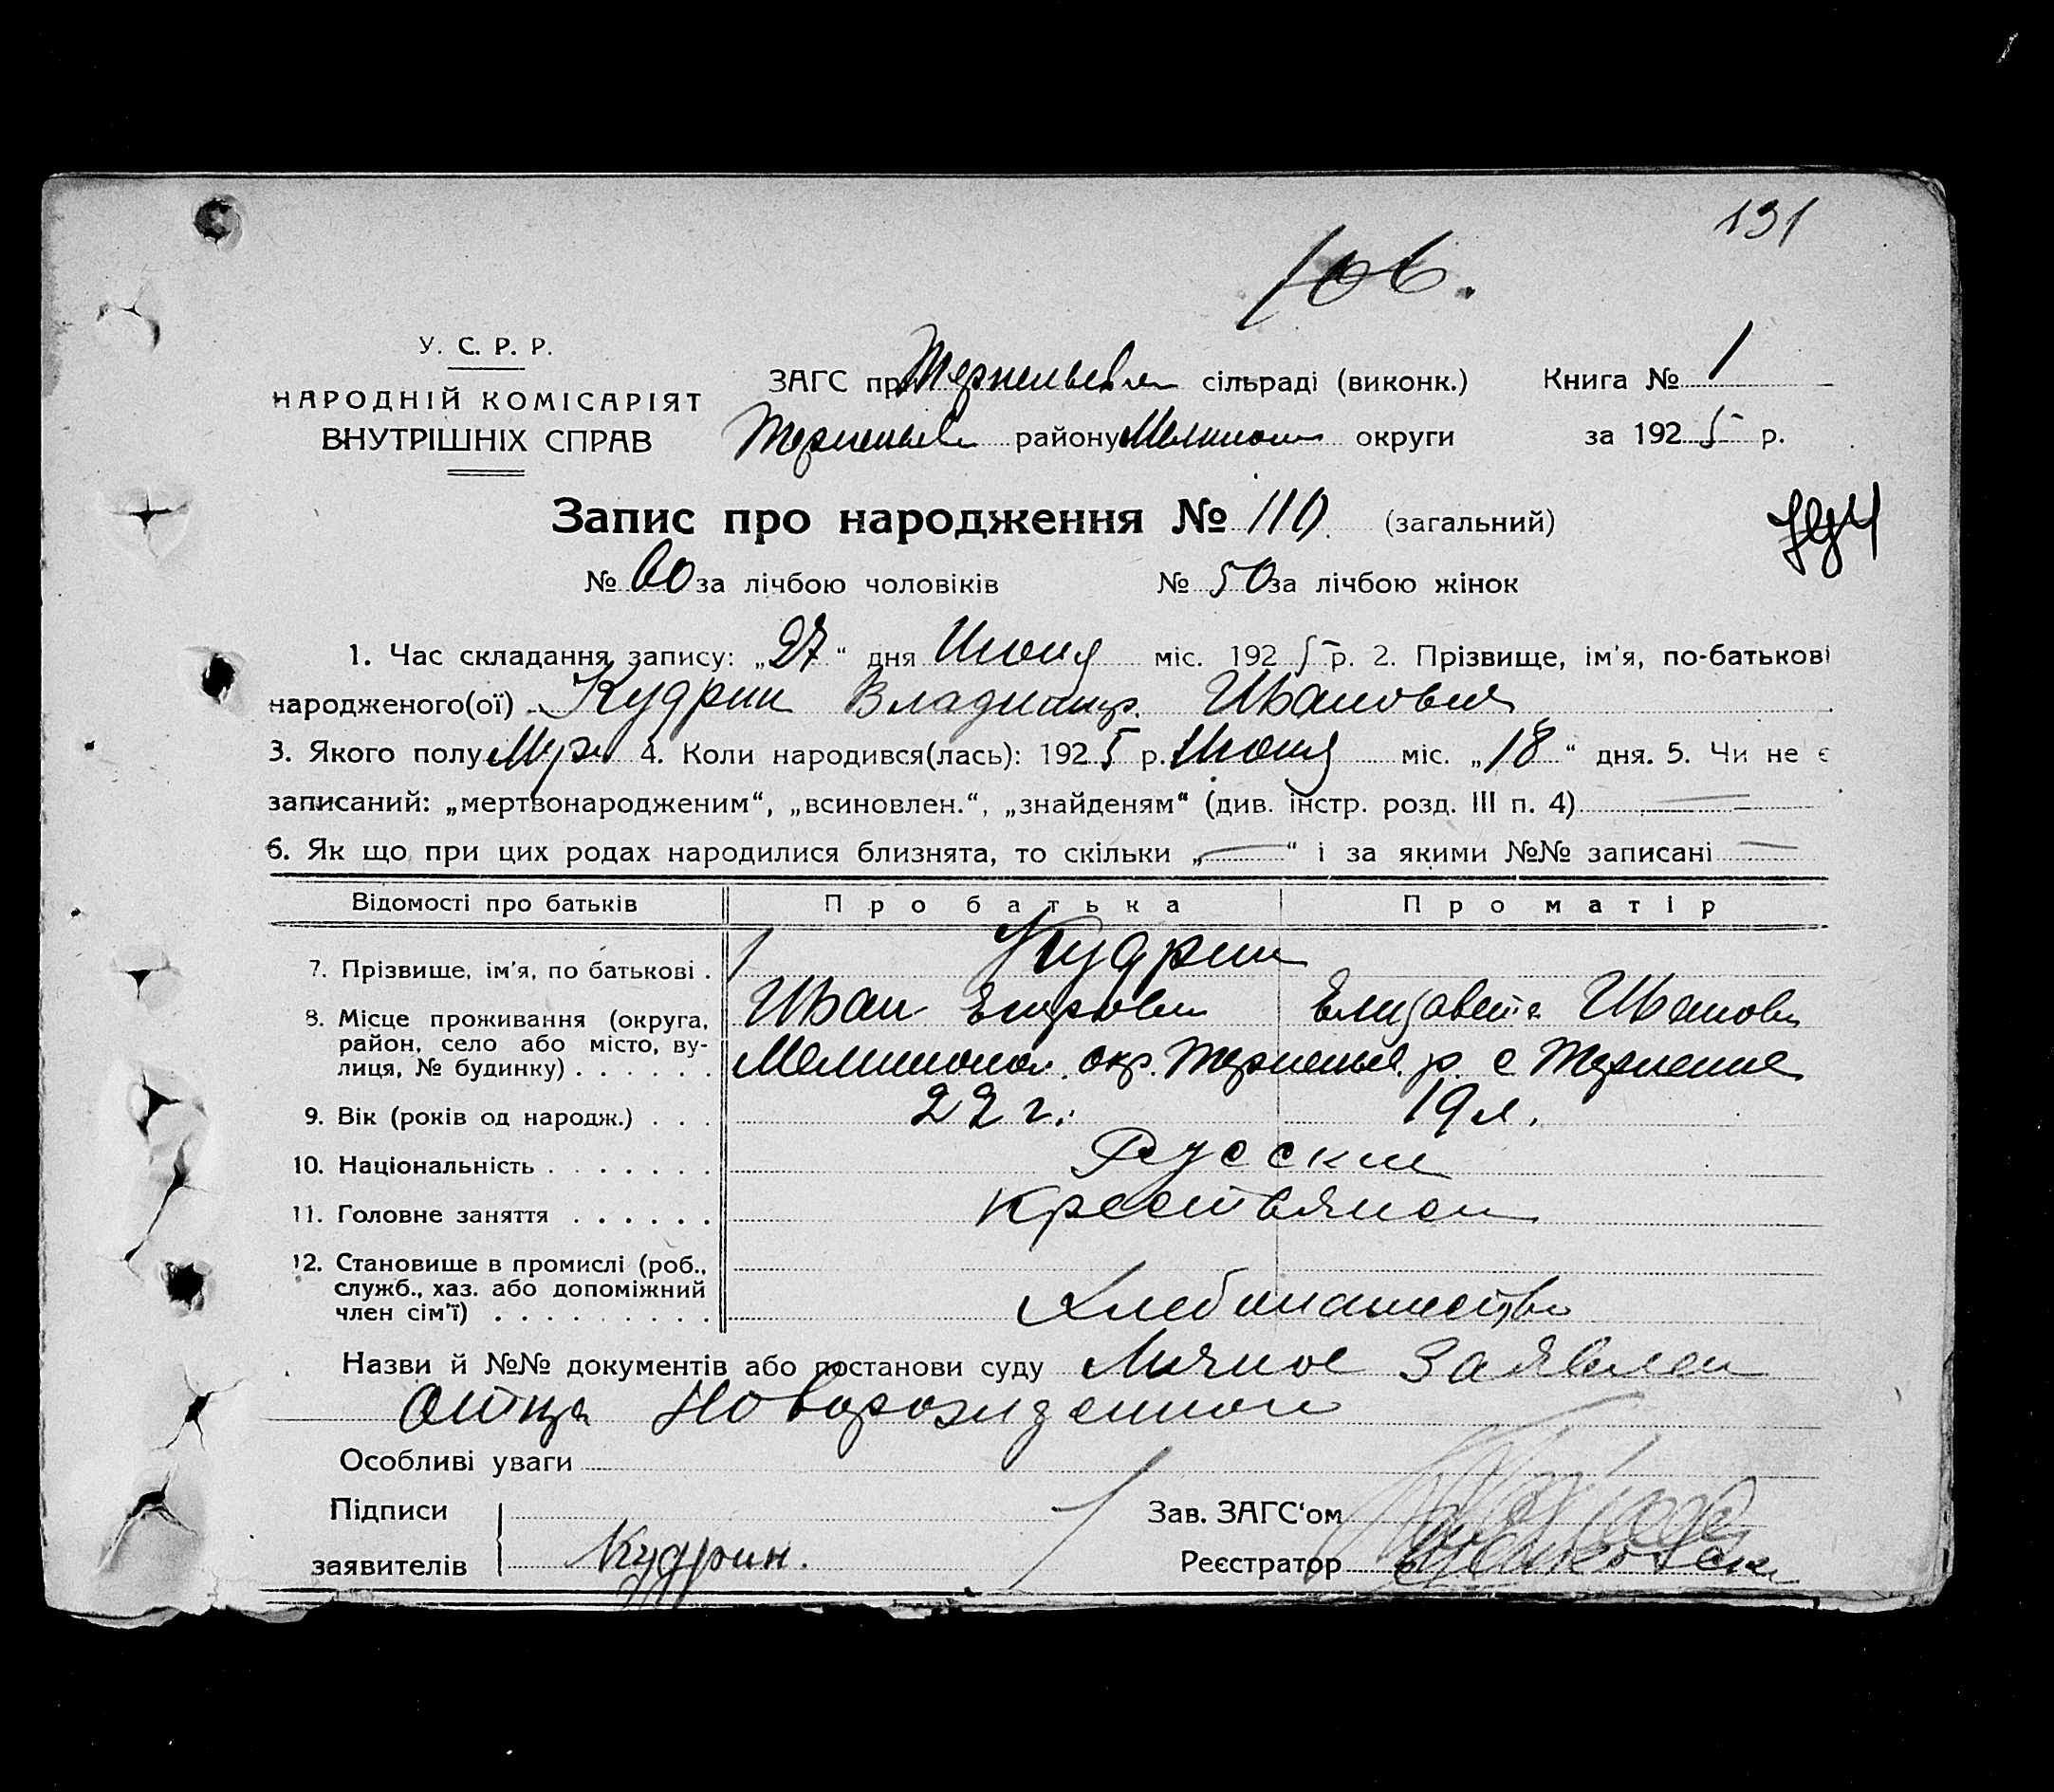 131
106.
У. С. Р. Р.
НАРОДНІЙ КОМІСАРІЯТ
ВНУТРІШНІХ СПРАВ
ЗАГС при сільраді (виконк.) Книга № 1
району округи за 1925 р.
Запис про народження № 110. (загальний)
№ 60 за лічбою чоловіків № 50 за лічбою жінок
1. Час складання запису: „27“ дня Июня міс. 1925 р. 2. Прізвище, ім'я, по-батькові
народженого(ої) Кудрин Владимир. Иванович
3. Якого полу Муж 4. Коли народився(лась): 1925 р. Июня міс. „18“ дня. 5. Чи не є
записаний: „мертвонародженим“, „всиновлен.“, „знайденям“ (див. інстр. розд. III п. 4) —
6. Як що при цих родах народилися близнята, то скільки „—“ і за якими №№ записані —
Відомості про батьків Про батька Про матір
7. Прізвище, ім'я, по батькові . Кудрин
Иван Егорович Елизавета Иванов
8. Місце проживання (округа,
район, село або місто, ву-
лиця, № будинку) . . . . . . Мелитопол. окр. Терпеньев. р. с Терпение
9. Вік (років од народж.) . . . 22 г. 19 л.
10. Національність . . . . . . . Русские
11. Головне заняття . . . . . . Крестьяне
12. Становище в промислі (роб.,
служб., хаз. або допоміжний
член сім'ї) . . . . . . . . . Хлебопашество
Назви й №№ документів або постанови суду Личное Заявлен
отца Новорожденного
Особливі уваги
Підписи Зав. ЗАГС'ом
заявителів Кудрин. Реєстратор